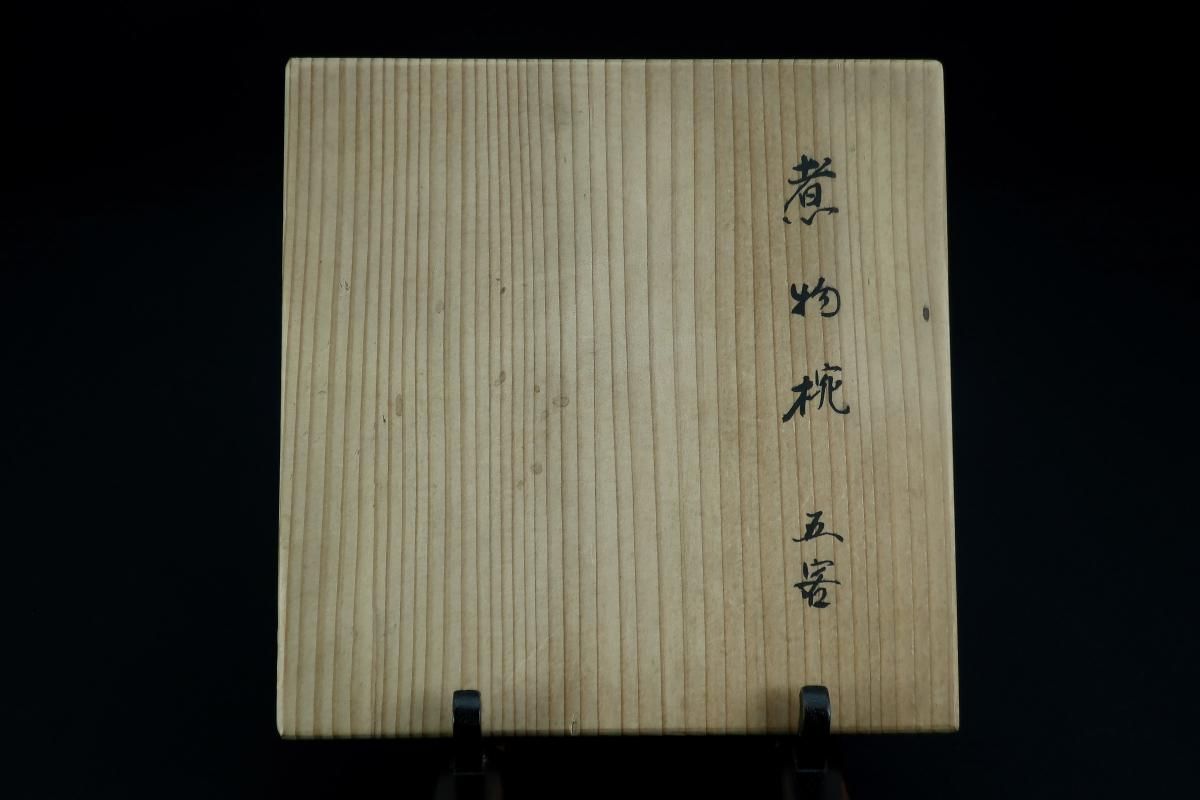 煮物椀 五客